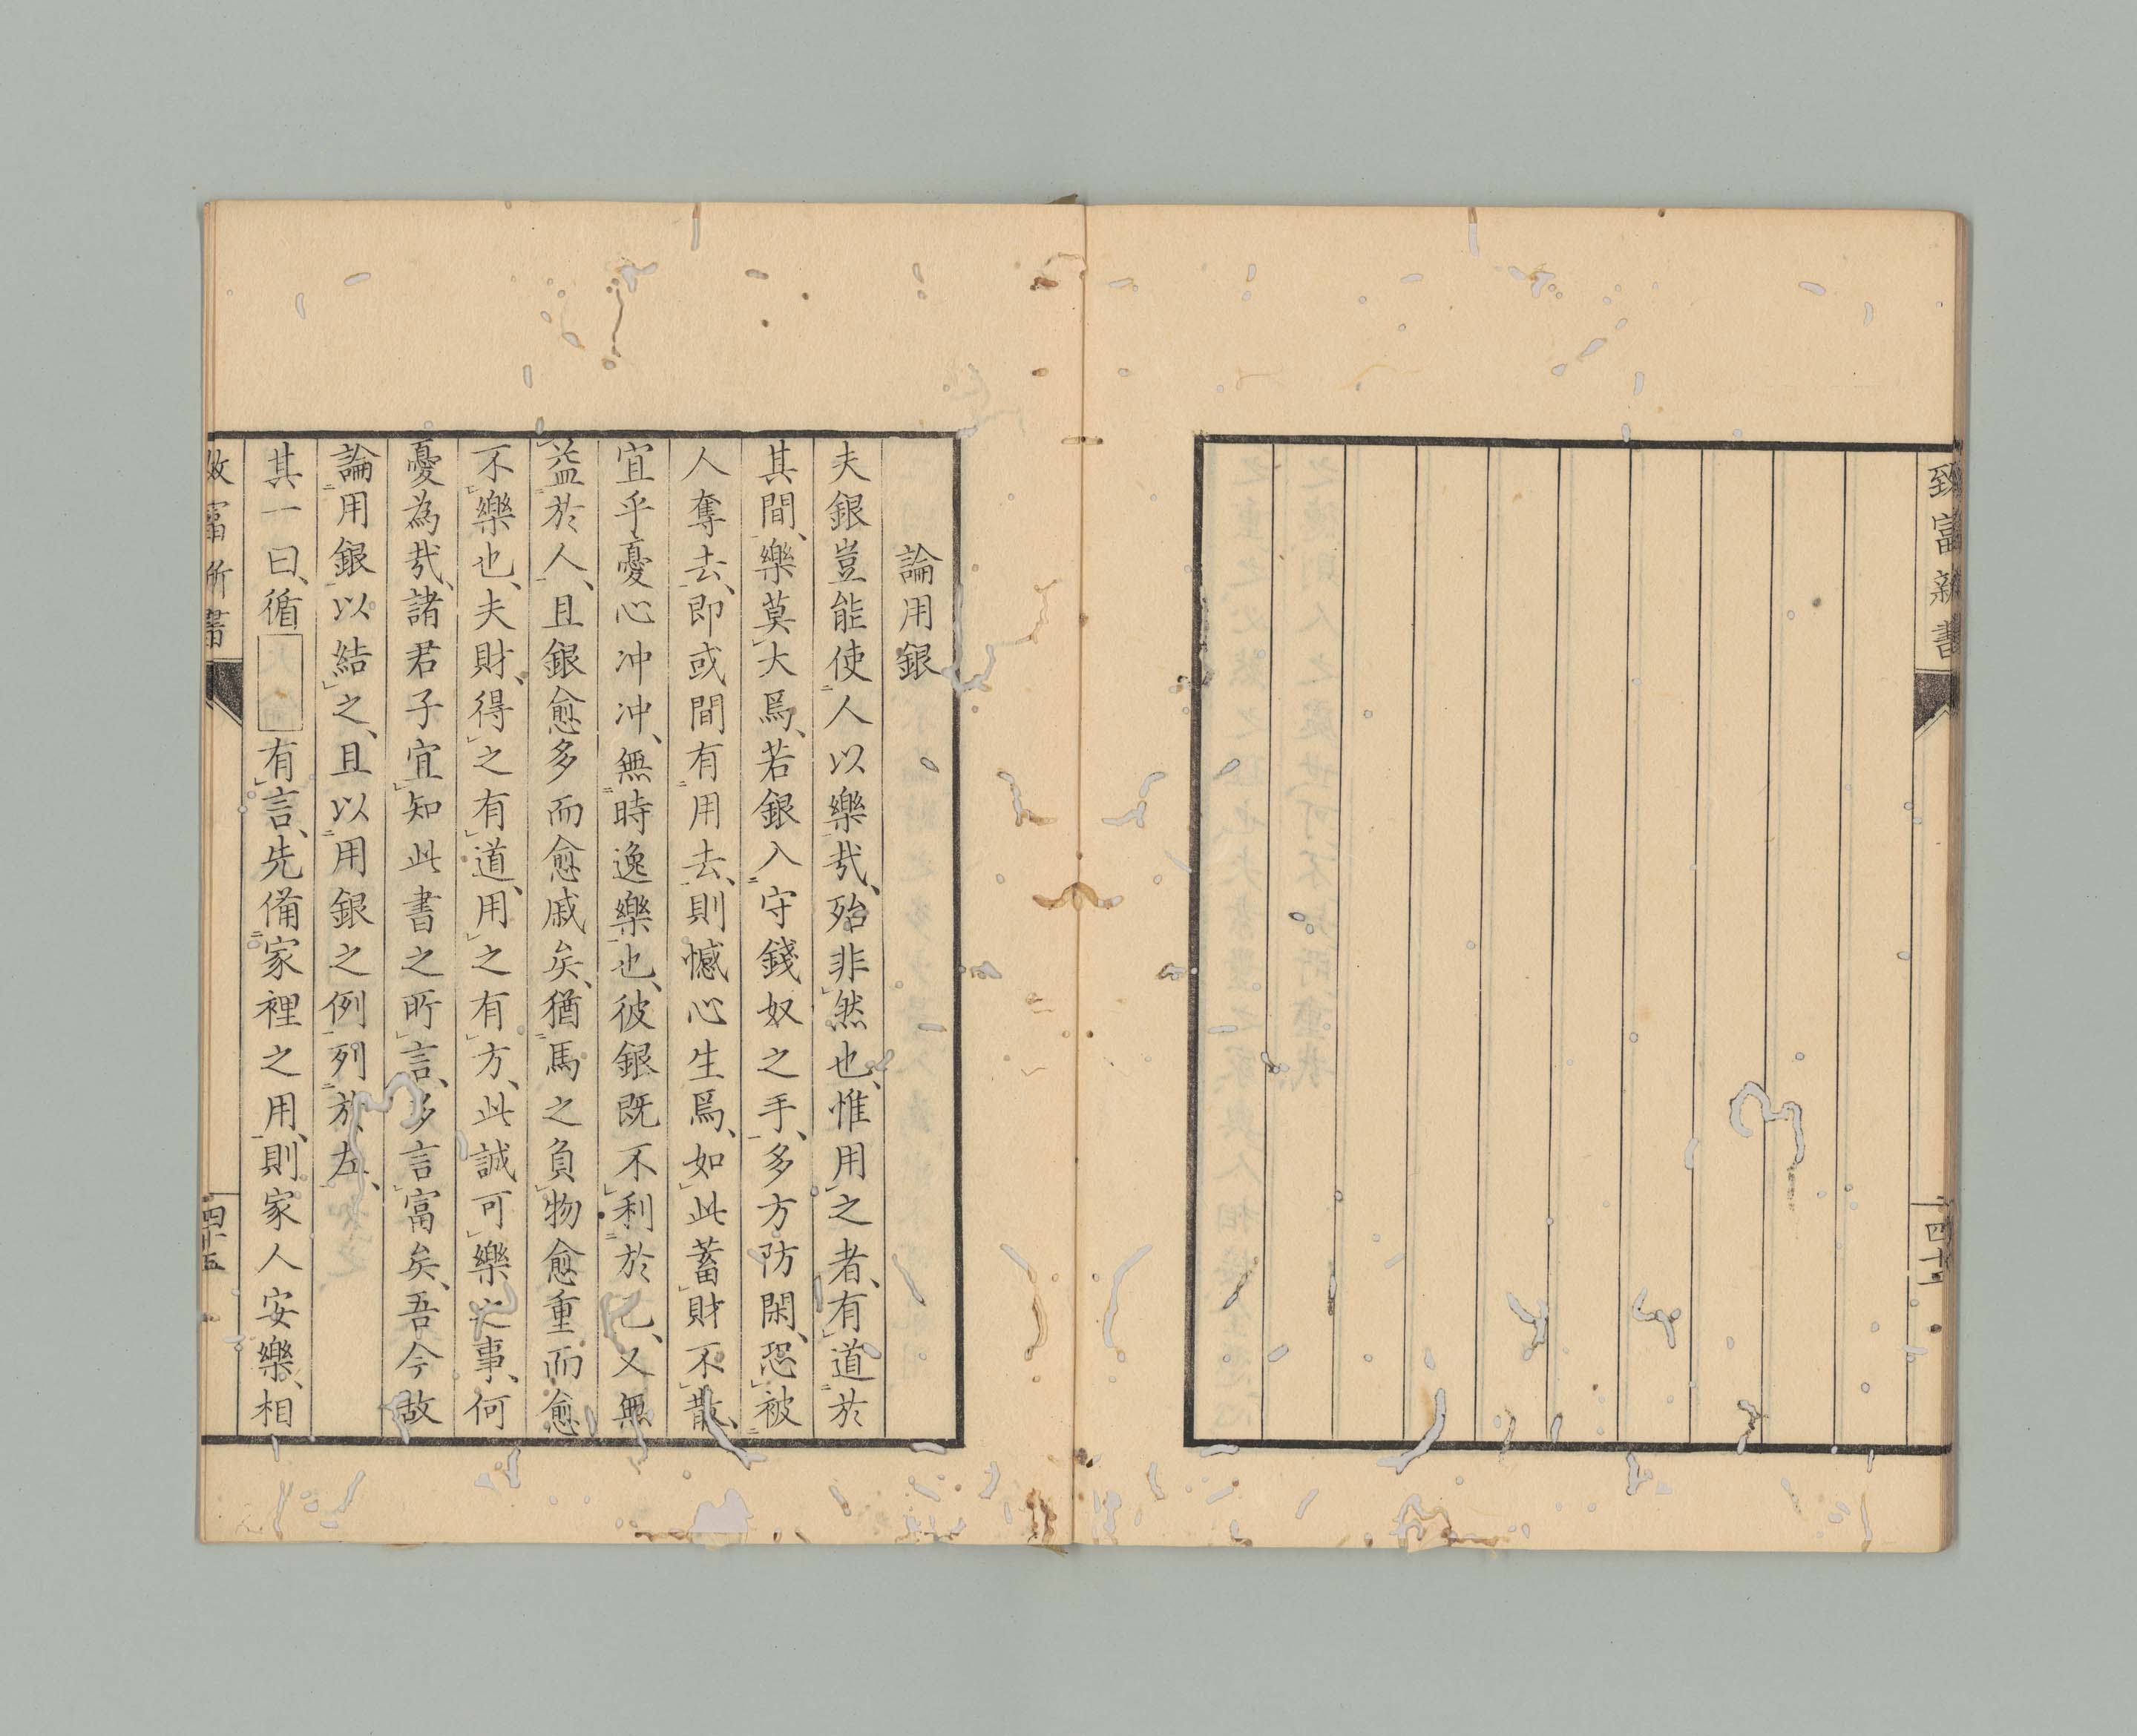 致富新書
四十
論用銀
夫銀豈能使人以樂哉、殆非然也、惟用之者、有道於
其間、樂莫大焉、若銀入守錢奴之手、多方防閑、恐被
人奪去、即或間有用去、則憾心生焉、如此蓄財不散、
宜乎憂心冲冲、無時逸樂也、彼銀既不利於己、又無
益於人、且銀愈多而愈戚矣、猶馬之負物愈重而愈
不樂也、夫財、得之有道、用之有方、此誠可樂之事、何
憂為哉、諸君子宜知此書之所言、多言富矣、吾今故
論用銀以結之、且以用銀之例列於左、
其一曰、循有言、先備家裡之用、則家人安樂、相
致富新書
四十五